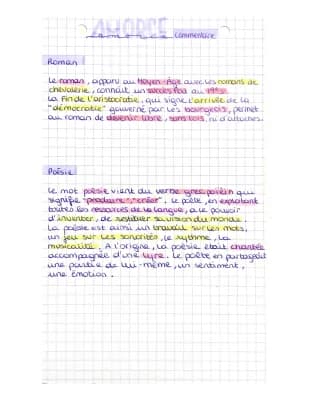 AMORCE
amorce commentaire
Roman
Le roman, apparu au Moyen-Age avec les romans de
chevalerie, connaît un succès fou au 19e s.
La fin de l'aristocratie, qui signe l'arrivée de la
"démocratie" gouverné par les bourgeois, permet
au roman de devenir libre, sans lois, ni d'attaches.
Poésie
Le mot poésie vient du verbe grec poiein qui
signifie "produire", "créer". Le poète, en exploitant
toutes les ressources de la langue, a le pouvoir
d'inventer, de restituer sa vision du monde.
La poésie est ainsi un travail sur les mots,
un jeu sur les sonorités, le rythme, la
musicalité. A l'origine, la poésie était chantée
accompagnée d'une lyre. Le poète en partageait
une partie de lui-même, un sentiment,
une émotion.